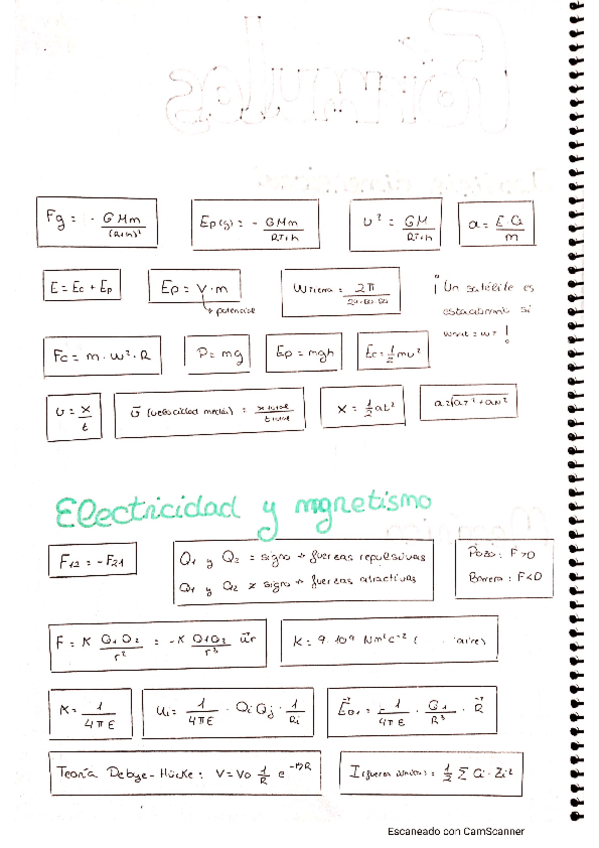 Fórmulas
Fg = - GMm/(R+h)² Ep(g) = - GMm/RT+h v² = GM/RT+h a = E Q/m
E = Ec + Ep Ep = V · m → potencial WTierra = 2π/24·60·60 ¡ Un satélite es
estacionario si
wsat = wT !
Fc = m · w² · R P = mg Ep = mgh Ec = 1/2 mv²
v = x/t v̄ (velocidad media) = x total/t total x = 1/2 at² a = √aT² + aN²
Electricidad y magnetismo
F12 = - F21 Q1 y Q2 = signo → fuerzas repulsivas Pozo : F>0
Q1 y Q2 ≠ signo → fuerzas atractivas Barrera : F<0
F = K Q1Q2/r² = -K Q1Q2/r³ ūr K = 9·10⁹ Nm²C⁻² ( aire)
K = 1/4πε Ui = 1/4πε · Qi Qj · 1/Ri = 1/4πε · Q1/R³ · R⃗
Teoría Debye-Hückel : V = Vo 1/R e I = 1/2 Σ Ci · Zi²
Escaneado con CamScanner